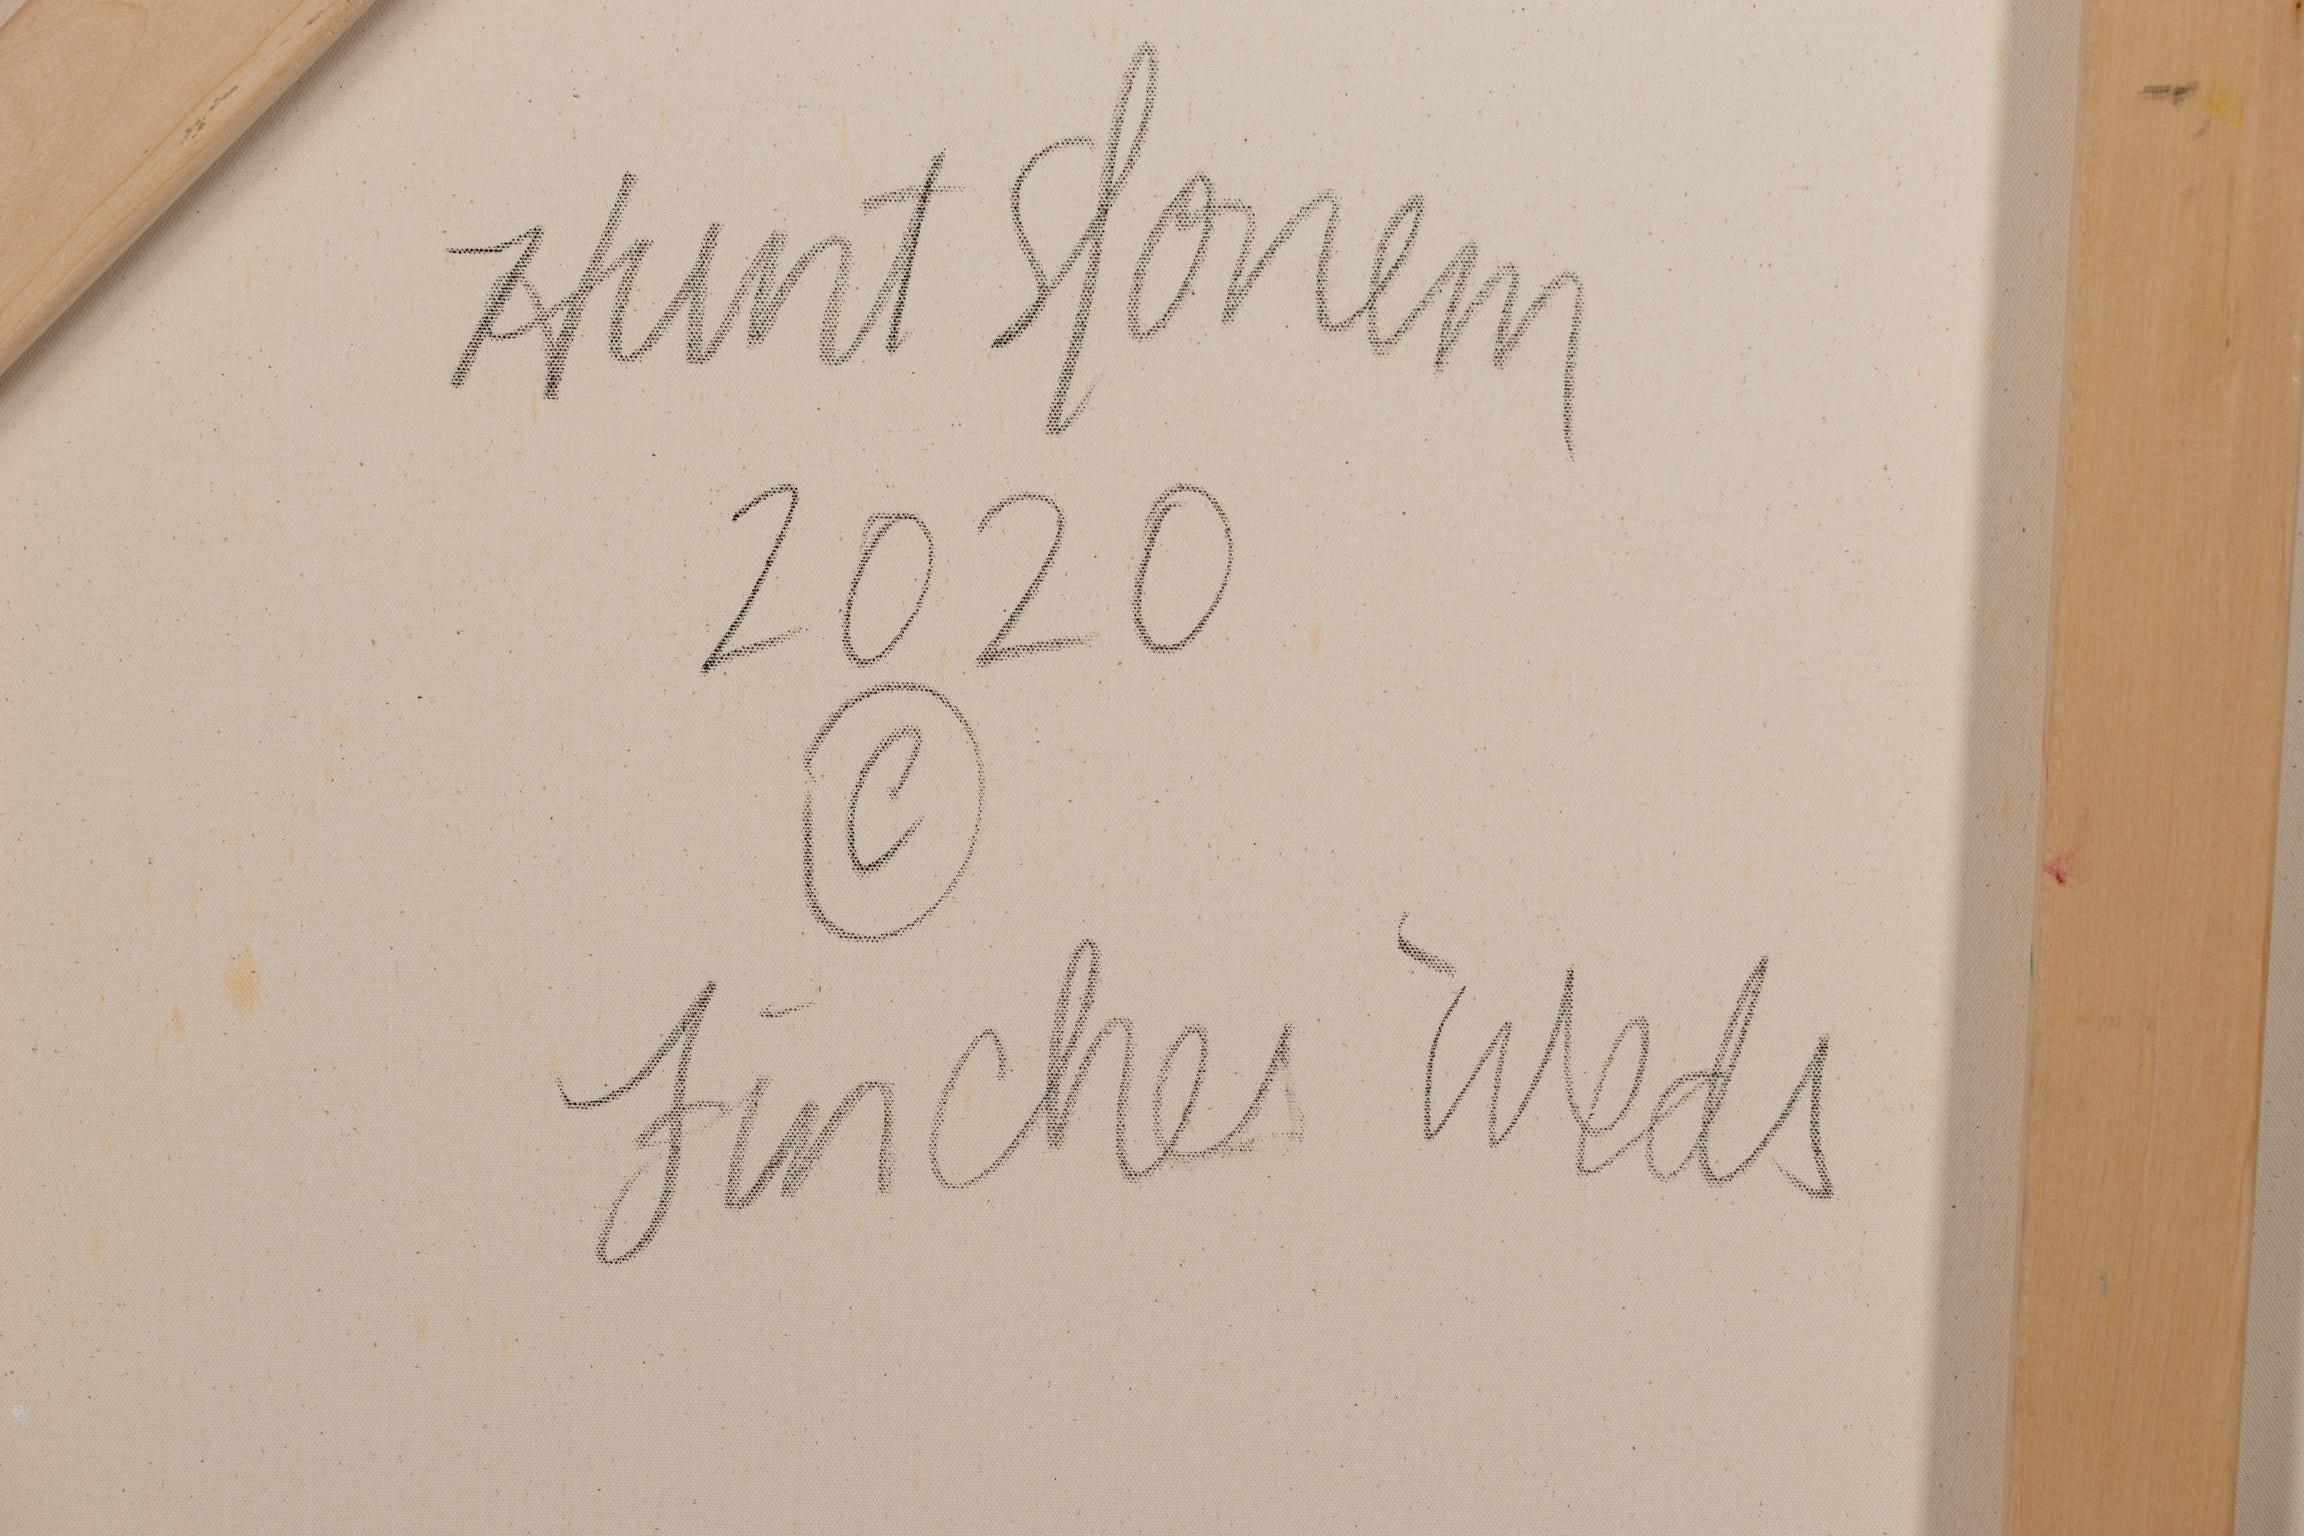 Hunt Slonem
2020
©
Finches Weds